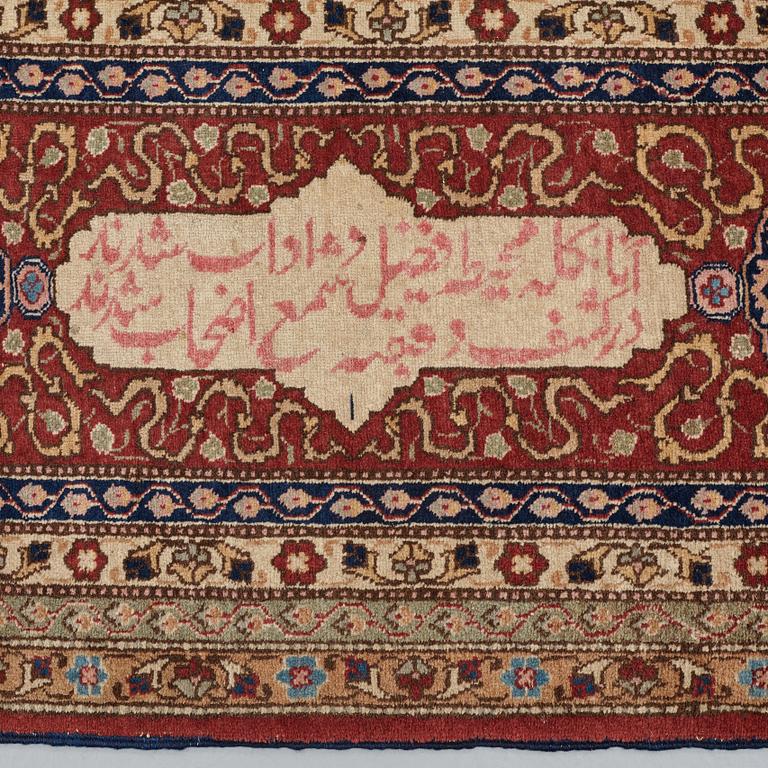 آنانکه محیط فضل و اداب شدند
در کشف دقیقه شمع اصحاب شدند